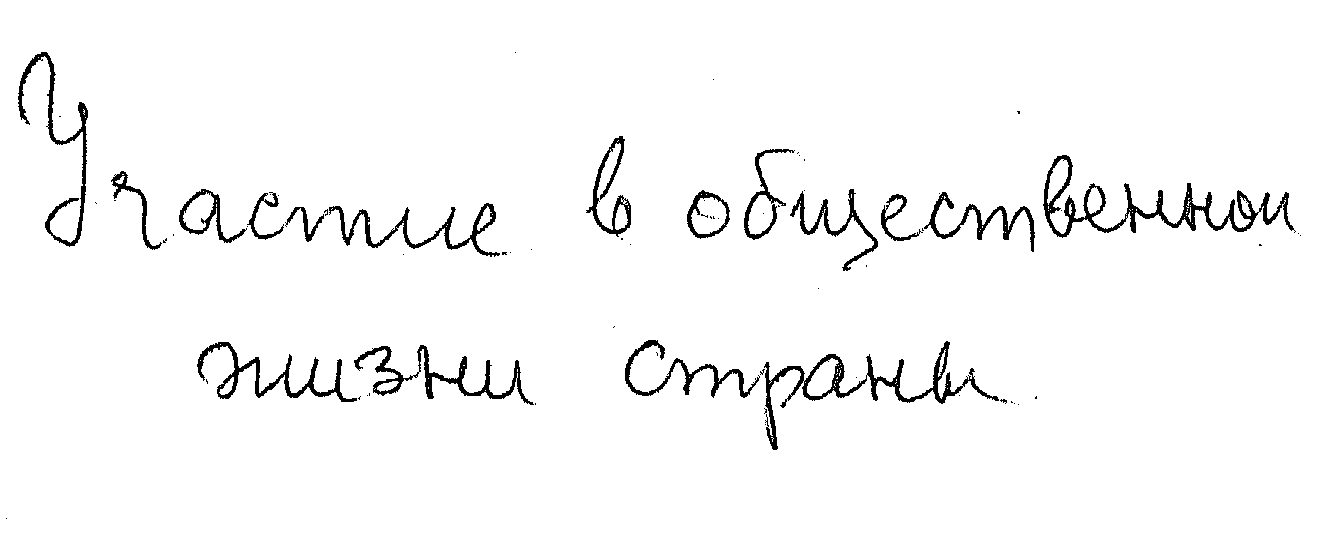 Участие в общественной
жизни страны